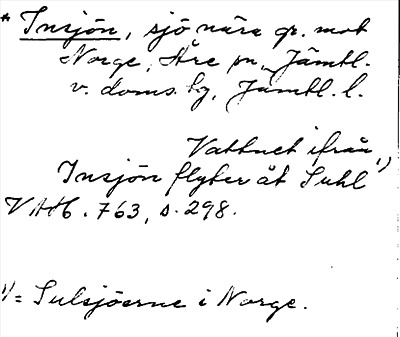 * Insjön, sjö nära gr. mot
Norge, Åre sn, Jämtl.
v. doms.hg, Jämtl. l.
Vattnet ifrån
Insjön flyter åt Suhl 1)
VHH6. 763, s. 298.
1) = Sulsjöerne i Norge.